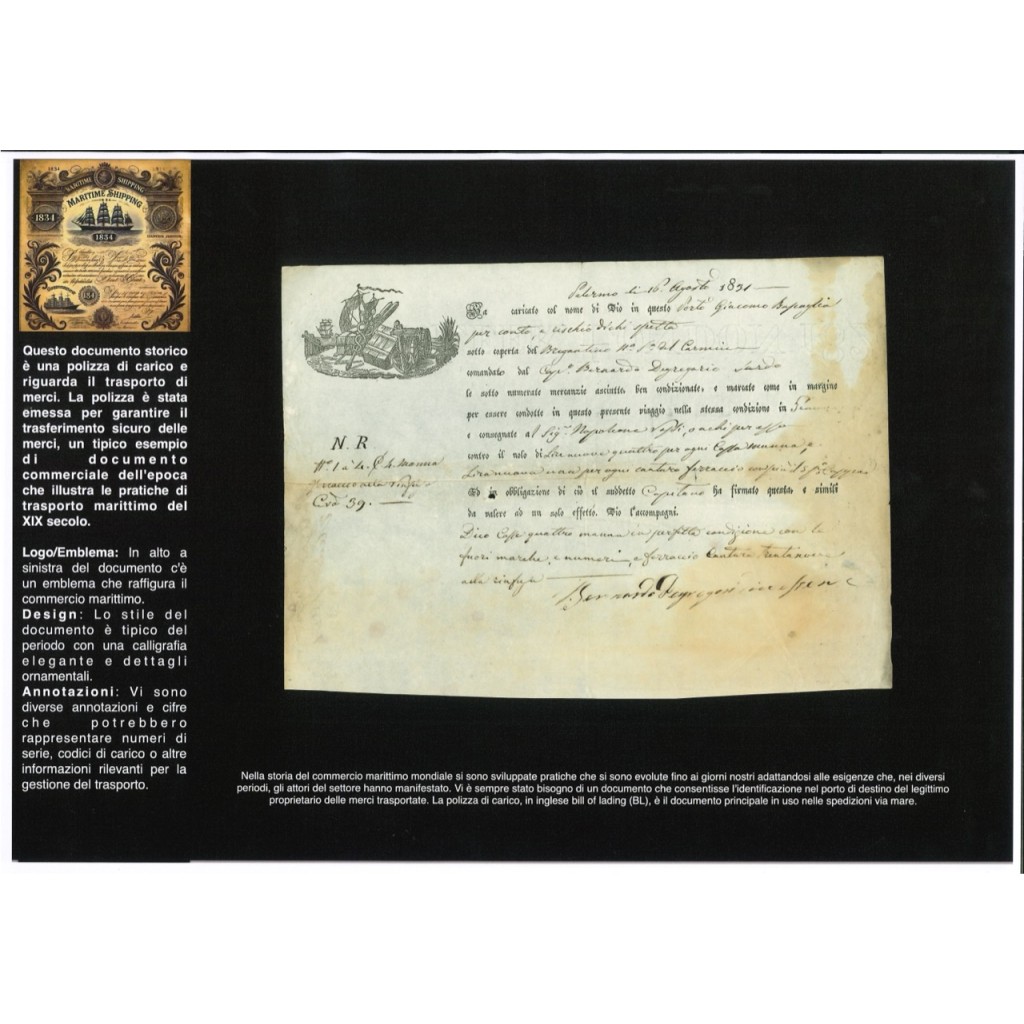 MARITIME SHIPPING
MARITIME SHIPPING
1834
1834
Questo documento storico
è una polizza di carico e
riguarda il trasporto di
merci. La polizza è stata
emessa per garantire il
trasferimento sicuro delle
merci, un tipico esempio
di documento
commerciale dell'epoca
che illustra le pratiche di
trasporto marittimo del
XIX secolo.
Logo/Emblema: In alto a
sinistra del documento c'è
un emblema che raffigura il
commercio marittimo.
Design: Lo stile del
documento è tipico del
periodo con una calligrafia
elegante e dettagli
ornamentali.
Annotazioni: Vi sono
diverse annotazioni e cifre
che potrebbero
rappresentare numeri di
serie, codici di carico o altre
informazioni rilevanti per la
gestione del trasporto.
Palermo li 16 Agosto
Ha caricato col nome di Dio in questo Porto Giacomo
per conto, e rischio di chi spetta
sotto coperta del Brigantino del Carmine
comandato dal Cap.º Bernardo Degregorio Sardo
le sotto numerate mercanzie asciutte, ben condizionate, e marcate come in margine
per essere condotte in questo presente viaggio nella stessa condizione in
e consegnate al Sig.r Napoleone o a chi per esso
contro il nolo di Lire nuove quattro per ogni Cassa manna, e
Lira nuova una per ogni cantaro ferraccio
Ed in obbligazione di ciò il suddetto Capitano ha firmato questa, e simili
da valere ad un solo effetto. Dio l'accompagni.
Dico Casse quattro manna in perfetta condizione con le
fuori marche, e numeri, e ferraccio Cantara trentanove
alla rinfusa
Bernardo
N. R
manna
ferraccio alla rinfusa
39.
Nella storia del commercio marittimo mondiale si sono sviluppate pratiche che si sono evolute fino ai giorni nostri adattandosi alle esigenze che, nei diversi
periodi, gli attori del settore hanno manifestato. Vi è sempre stato bisogno di un documento che consentisse l'identificazione nel porto di destino del legittimo
proprietario delle merci trasportate. La polizza di carico, in inglese bill of lading (BL), è il documento principale in uso nelle spedizioni via mare.